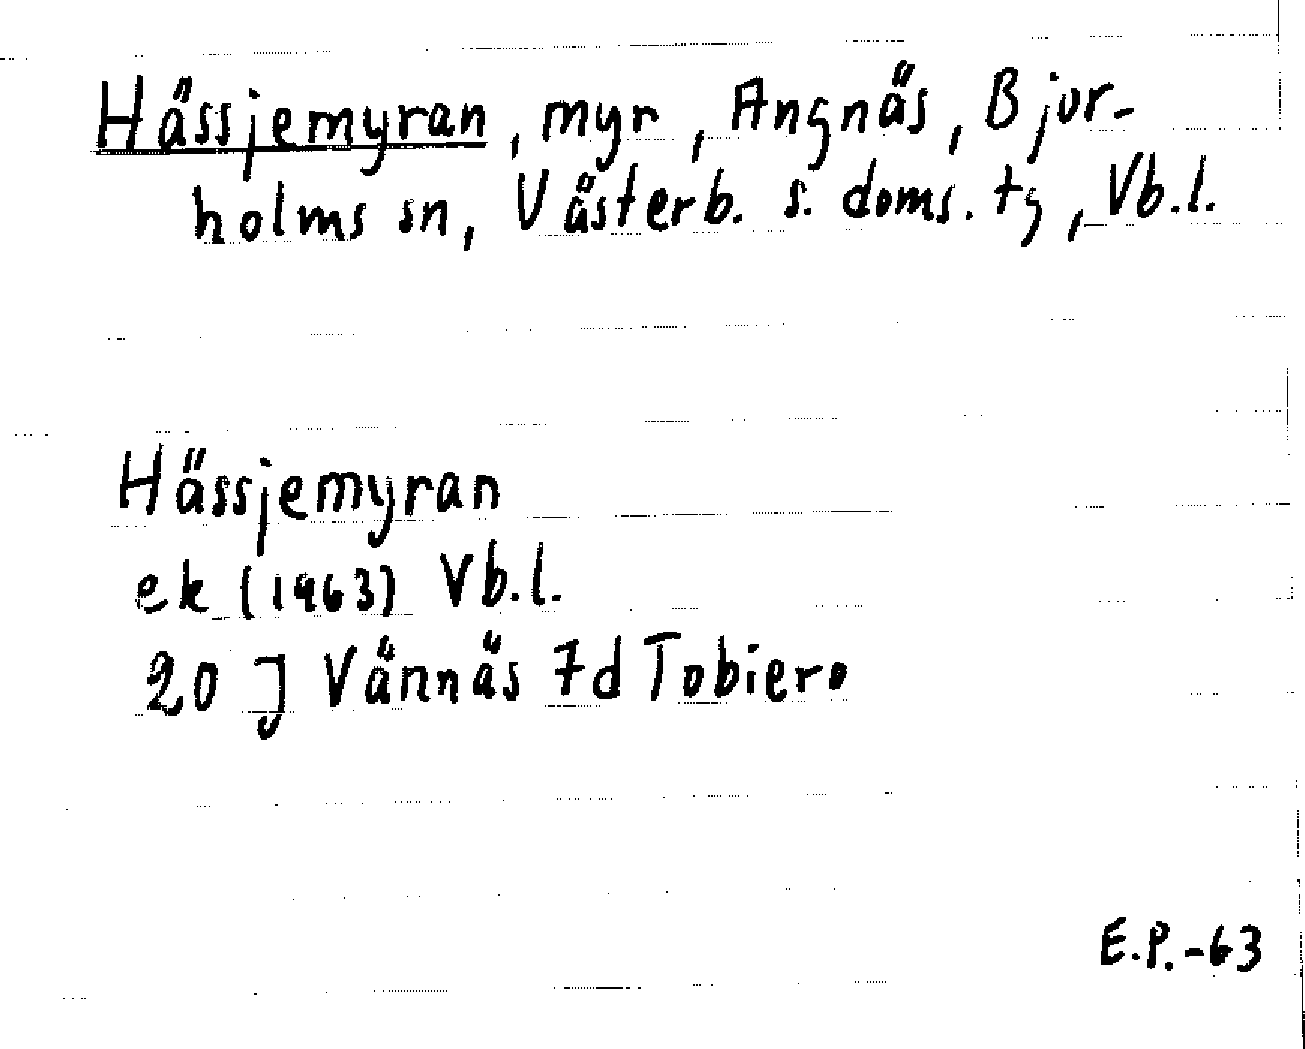 Hässjemyran, myr, Angnäs, Bjur-
holms sn, Västerb. s. doms. tg, Vb.l.
Hässjemyran
ek (1963) Vb.l.
20 J Vännäs 7d Tobiero
E.P.-63